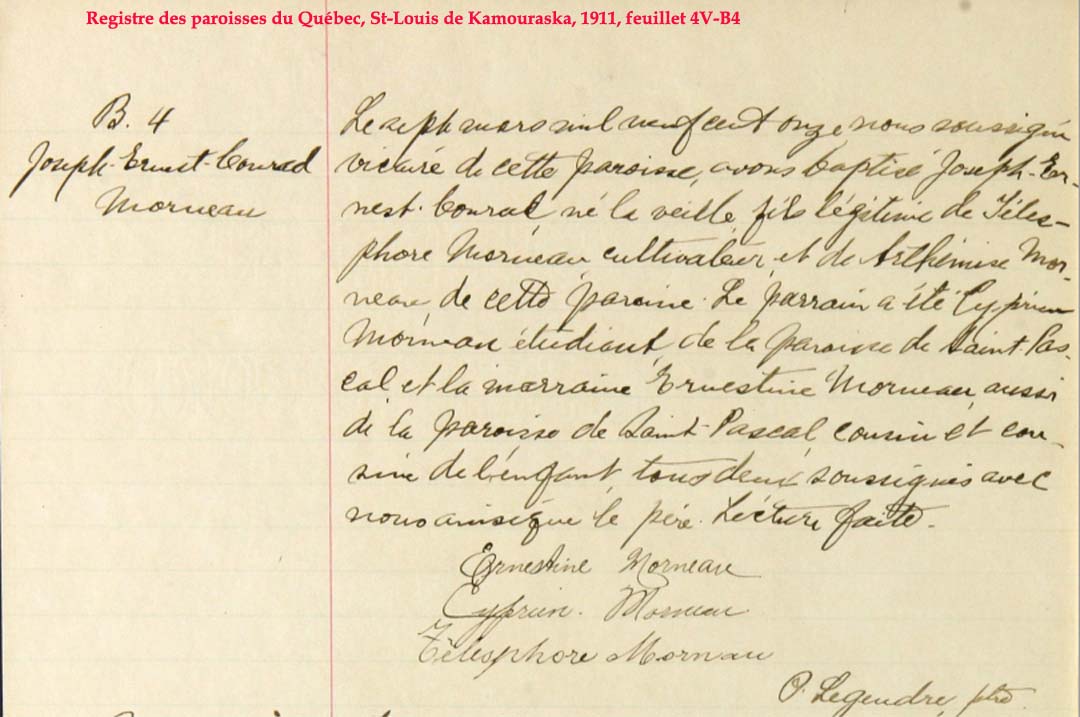 Registre des paroisses du Québec, St-Louis de Kamouraska, 1911, feuillet 4V-B4
B. 4
Joseph-Ernest-Conrad
Morneau
Le sept mars mil neuf cent onze nous soussigné
vicaire de cette paroisse, avons baptisé Joseph-Er-
nest-Conrad né la veille, fils légitime de Téles-
phore Morneau cultivateur, et de Arthémise Mor-
neau, de cette paroisse. Le parrain a été Cyprien
Morneau étudiant, de la paroisse de Saint-Pas-
cal, et la marraine Ernestine Morneau, aussi
de la paroisse de Saint-Pascal, cousin et cou-
sine de l'enfant, tous deux soussignés avec
nous ainsi que le père. Lecture faite.
Ernestine Morneau
Cyprien. Morneau
Télesphore Mornau
P. Legendre, ptre